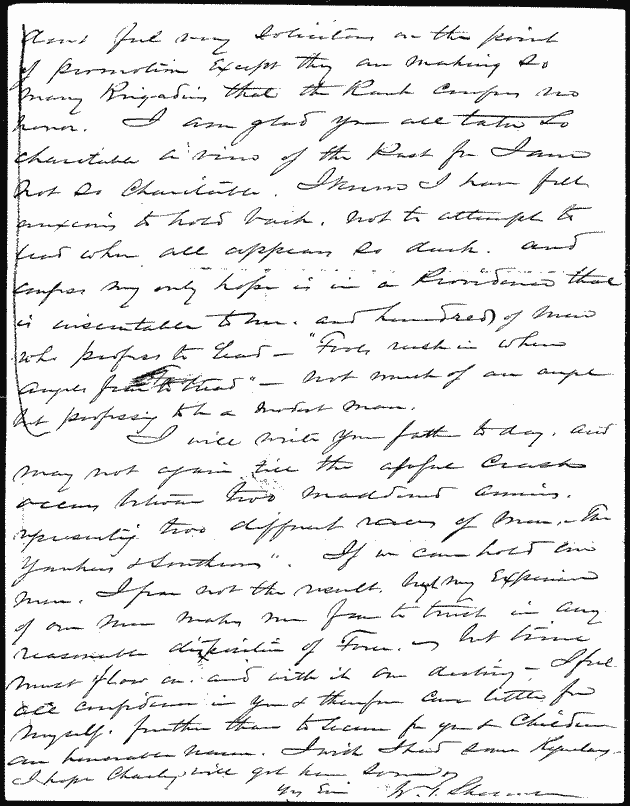 dont feel very Solicitous on the point
of promotion Except they are making so
many Brigadiers that the Rank confers no
honor. I am glad you all take so
charitable a view of the Past for I am
not so charitable. I know I have felt
anxious to hold back. not to attempt to
lead when all appears so dark. and
confess my only hope is in a Providence that
is inscrutable to me. and hundreds of men
who profess to lead - "Fools rush in where
Angels fear to tread" - not much of an angel
but professing to be a modest man.
I will write your father today. and
may not again till the awful crash
occurs between two maddened armies.
representing two different races of men, - "The
Yankees & Southrons". If we can hold our
men. I fear not the result. but my Experience
of our men makes me fear to trust in any
reasonable disposition of Force. - but time
must flow on. and with it our destiny - I feel
all confidence in you & therefore care little for
myself. further than to secure for you & Children
an honorable name. I wish I had some Regulars.
I hope Charley will get here soon
Yrs Ever W. T. Sherman